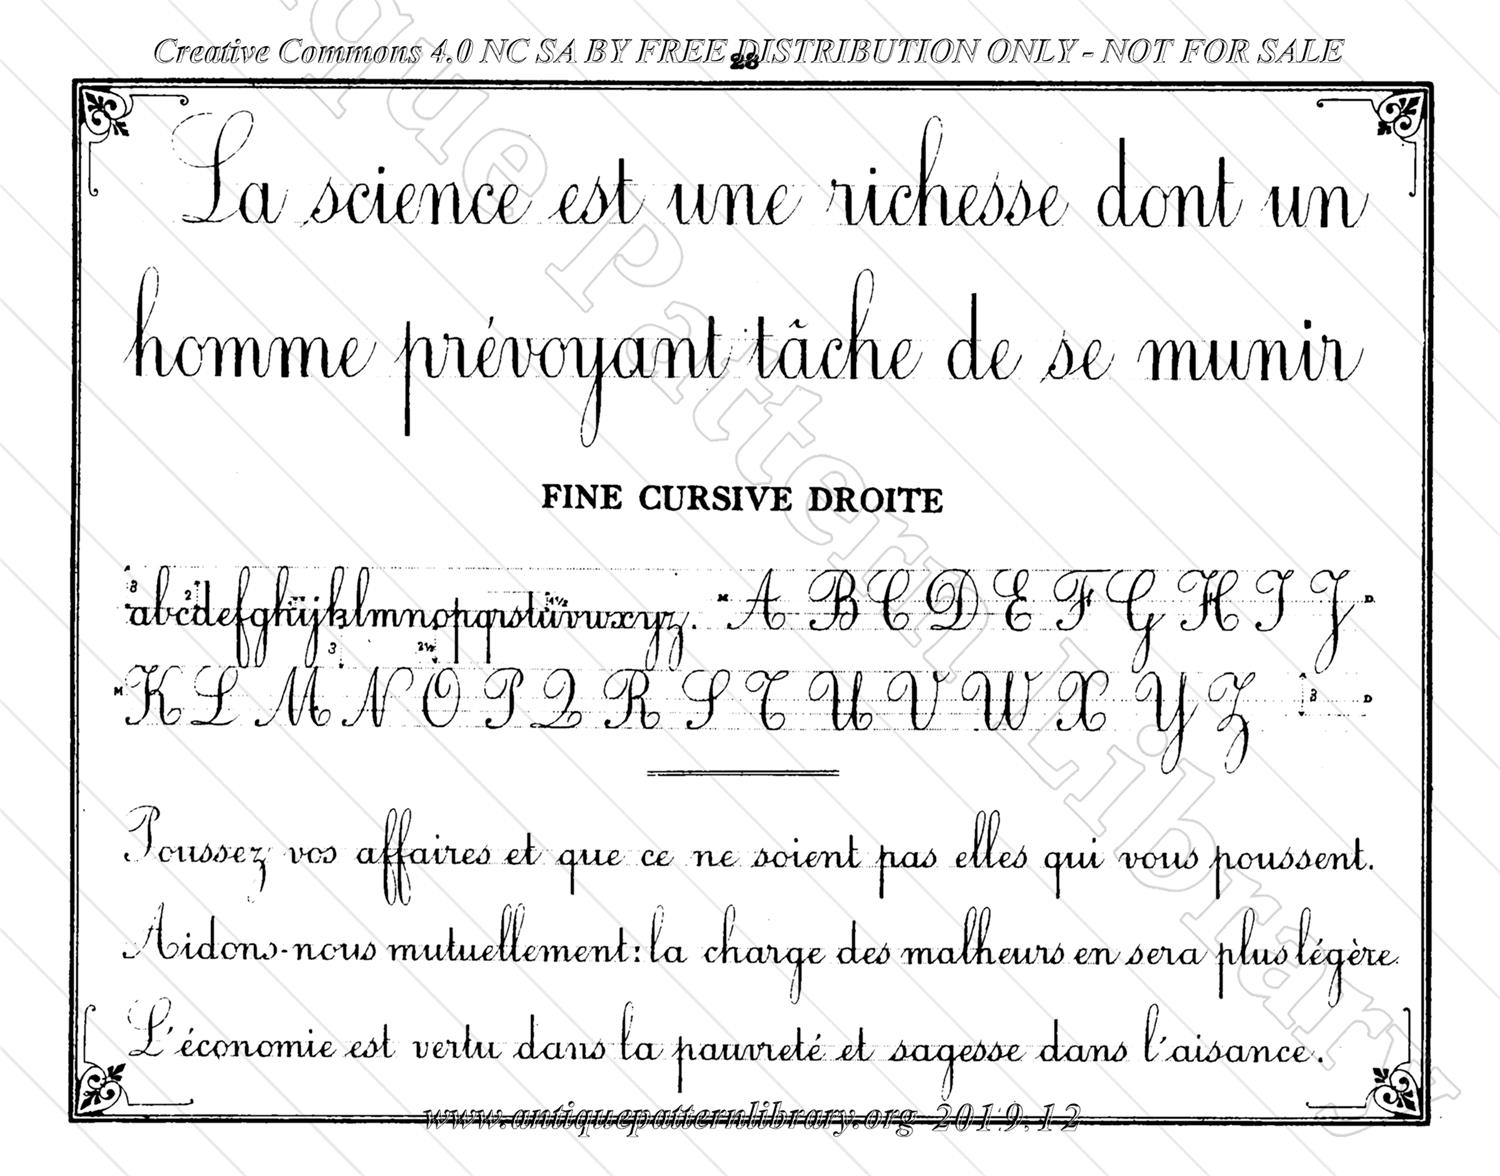 Creative Commons 4.0 NC SA BY FREE DISTRIBUTION ONLY - NOT FOR SALE
28
La science est une richesse dont un
homme prévoyant tâche de se munir
FINE CURSIVE DROITE
abcdefghijklmnopqrstuvwxyz. A B C D E F G H I J
K L M N O P Q R S T U V W X Y Z
Poussez vos affaires et que ce ne soient pas elles qui vous poussent.
Aidons-nous mutuellement: la charge des malheurs en sera plus légère.
L'économie est vertu dans la pauvreté et sagesse dans l'aisance.
www.antiquepatternlibrary.org 2019.12
que Pattern Library